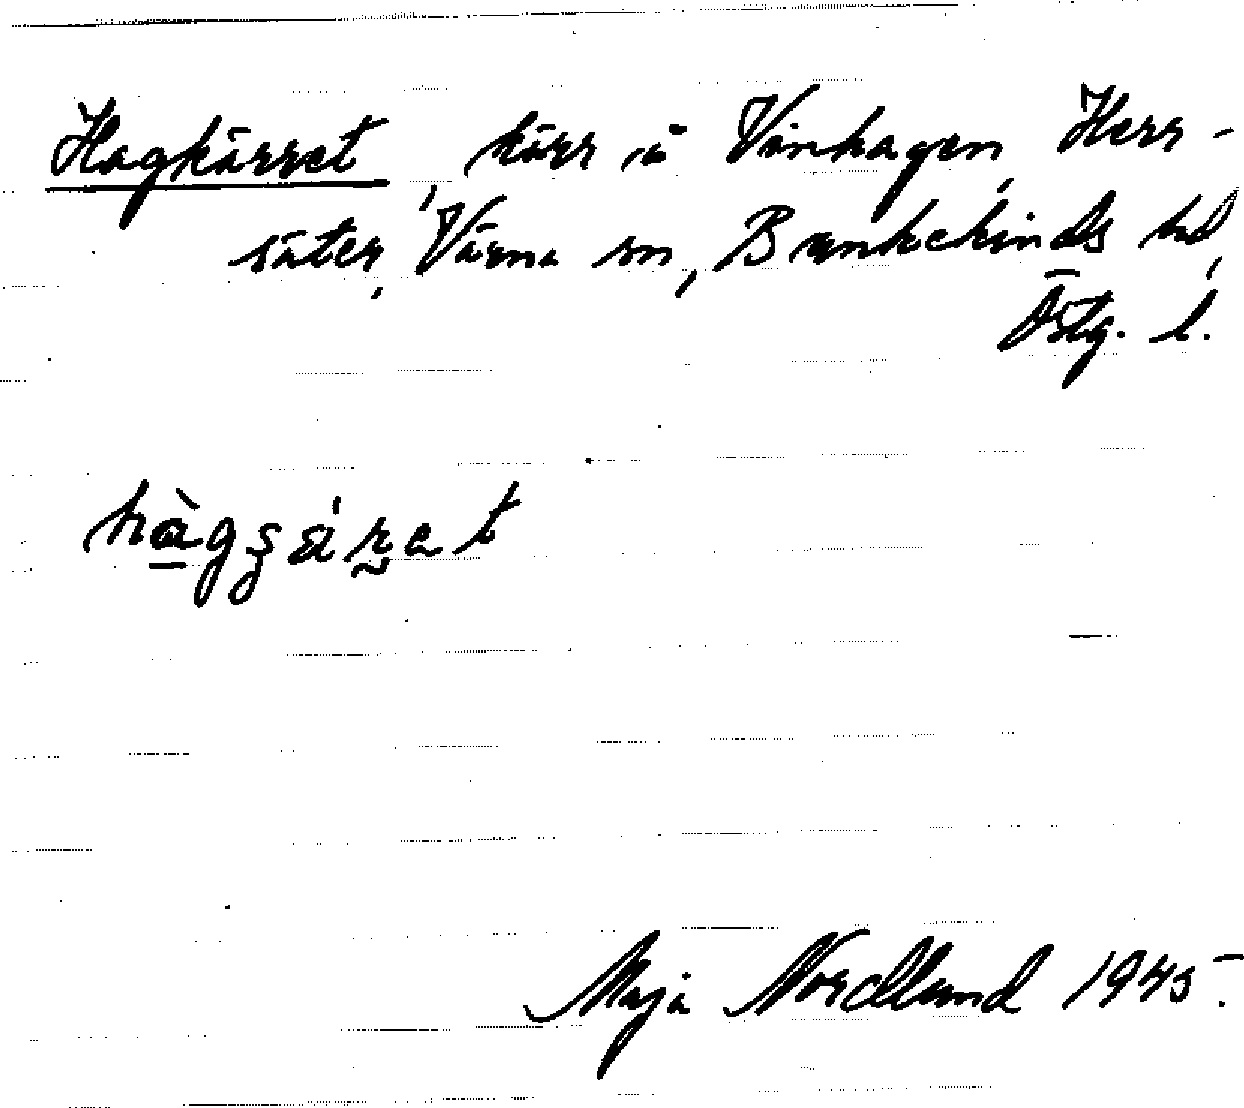 Hagkärret, kärr i Vinhagen, Herr-
säter, Värna sn, Bankekinds hd,
Östg. l.
Maja Nordlund 1945.